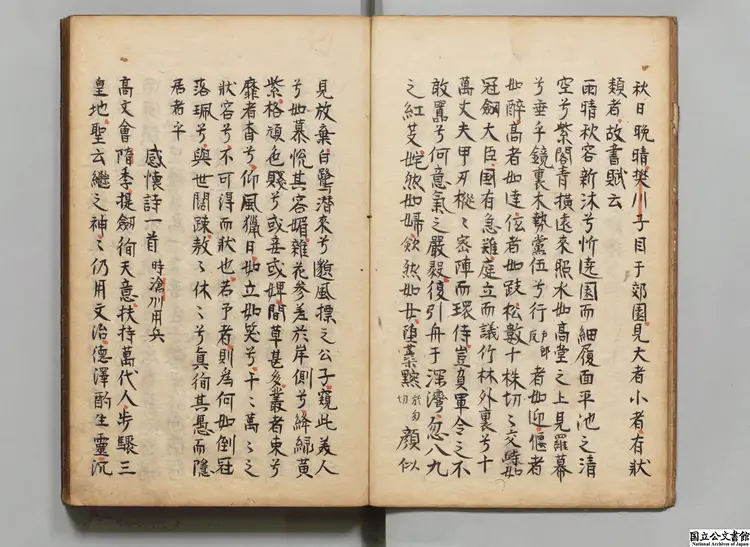 秋日晚晴樊川子目于郊園見大者小者有狀
類者故書賦云
雨晴秋容新沐兮忻遶園而細履面平池之清
空兮紫閣青橫遠來照水如高堂之上見羅幕
兮垂乎鏡裏木勢黨伍兮行戶郎反者如迎偃者
如醉高者如達低者如跂松數十株切〻交峙如
冠劒大臣國有急難庭立而議竹林外裹兮十
萬丈夫甲刃摐〻密陣而環侍豈負軍令之不
敢囂兮何意氣之嚴毅復引舟于深灣忽八九
之紅芰姹然如婦歛然如女堕蘂黦於勿切顏似
見放棄白鷺潛來兮邈風標之公子窺此美人
兮如慕悅其容媚雜花參差於岸側兮絳緑黄
紫格頑色賤兮或妾或婢間草甚多叢者束兮
靡者杳兮仰風獵日如立如笑兮千〻萬〻之
狀容兮不可得而狀也若予者則為何如倒冠
落珮兮與世闊踈敖〻休〻兮真徇其愚而隱
居者乎
感懷詩一首 時滄州用兵
高文會隋季提劒徇天意扶持萬代人步驟三
皇地聖云繼之神〻仍用文治德澤酌生靈沉
国立公文書館
National Archives of Japan